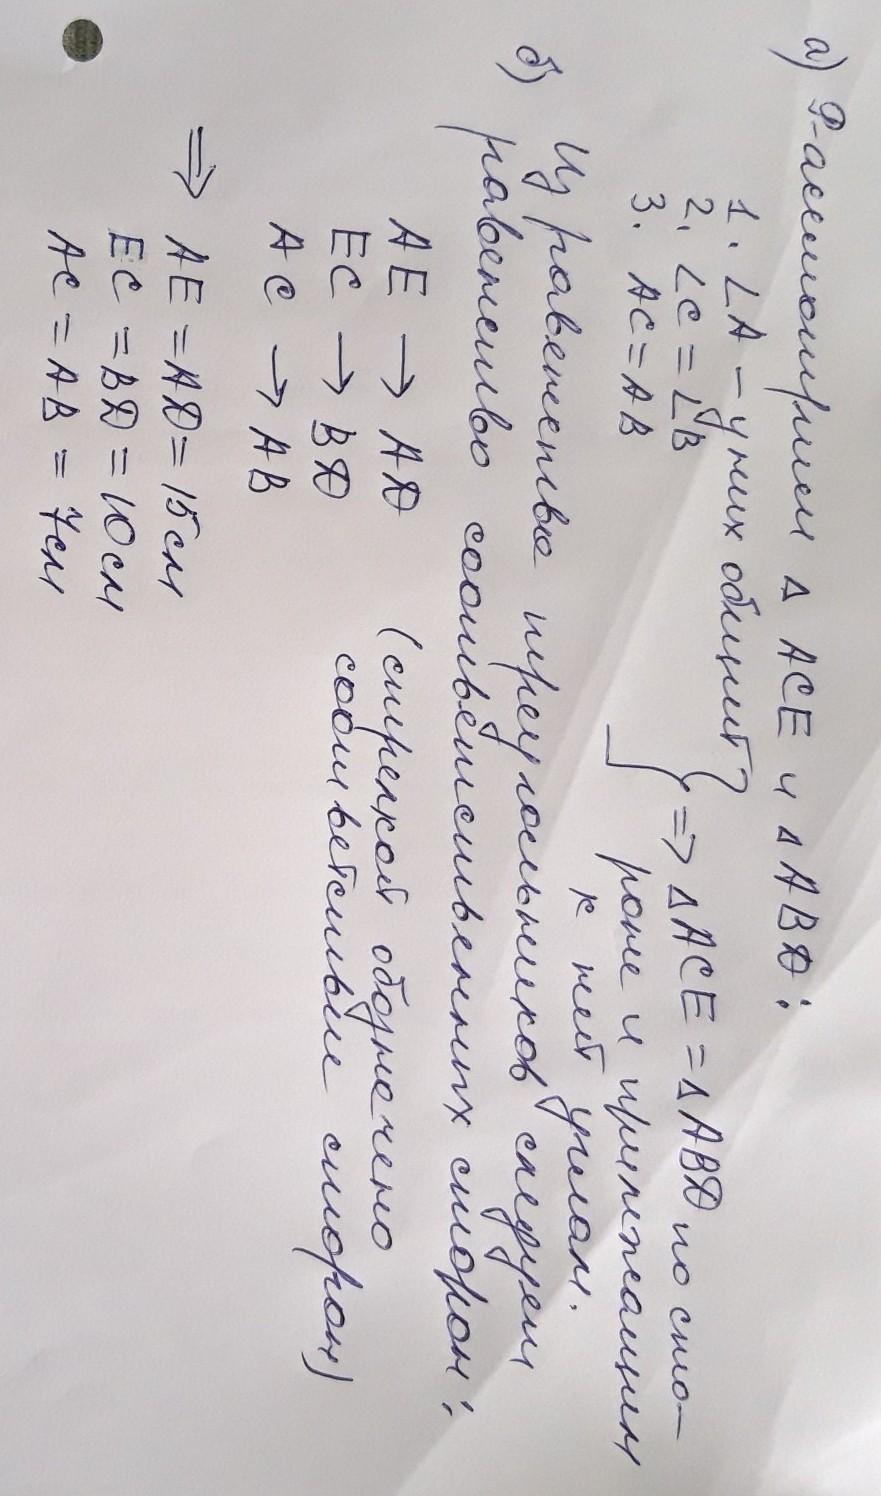 а) Р-ассмотрим △ ACE и △ ABD:
1. ∠A – у них общий
2. ∠C = ∠B
3. AC = AB
=> △ACE = △ABD по сто-
роне и прилежащим
к ней углам.
б) Из равенства треугольников следует
равенство соответственных сторон:
AE → AD
EC → BD
AC → AB
(стрелкой обозначено
соответствие сторон)
⇒ AE = AD = 15 см
EC = BD = 10 см
AC = AB = 7 см